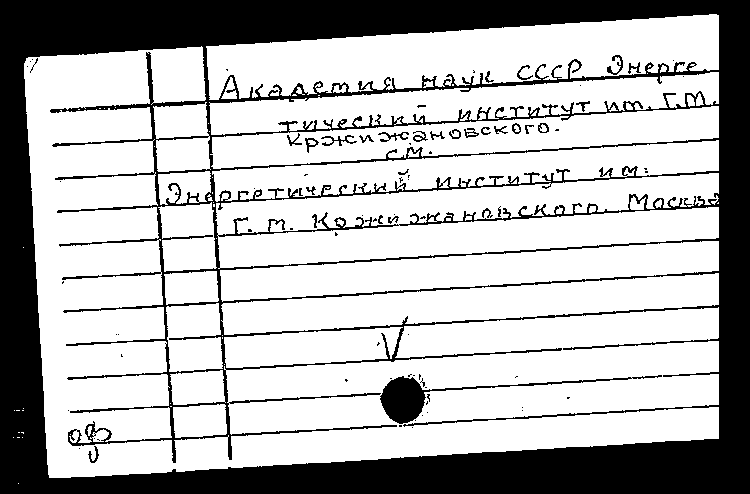 Академия наук СССР. Энерге
тический институт им. Г.М.
Кржижановского.
см.
Энергетический институт им.
Г. М. Кржижановского. Москва
V
оф